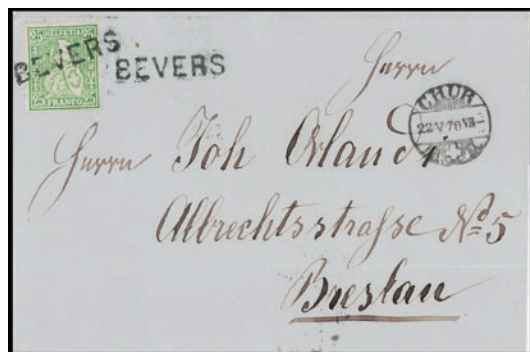 25 HELVETIA 25
25 FRANCO 25
BEVERS
BEVERS
Herrn
CHUR
22 V 70 VII
Herrn Joh Orlandi
Albrechtsstrasse No 5
Breslau